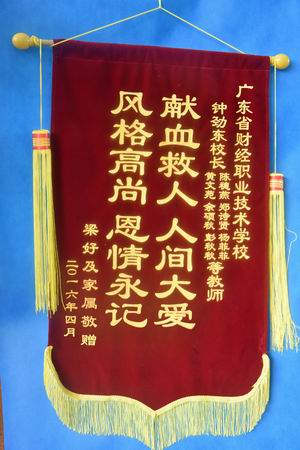 广东省财经职业技术学校
钟劲东校长 陈穗燕 郑诗贤 杨菲菲
黄文苑 余硕秋 彭秋秋 等教师
献血救人 人间大爱
风格高尚 恩情永记
梁好及家属敬赠
二〇一六年四月